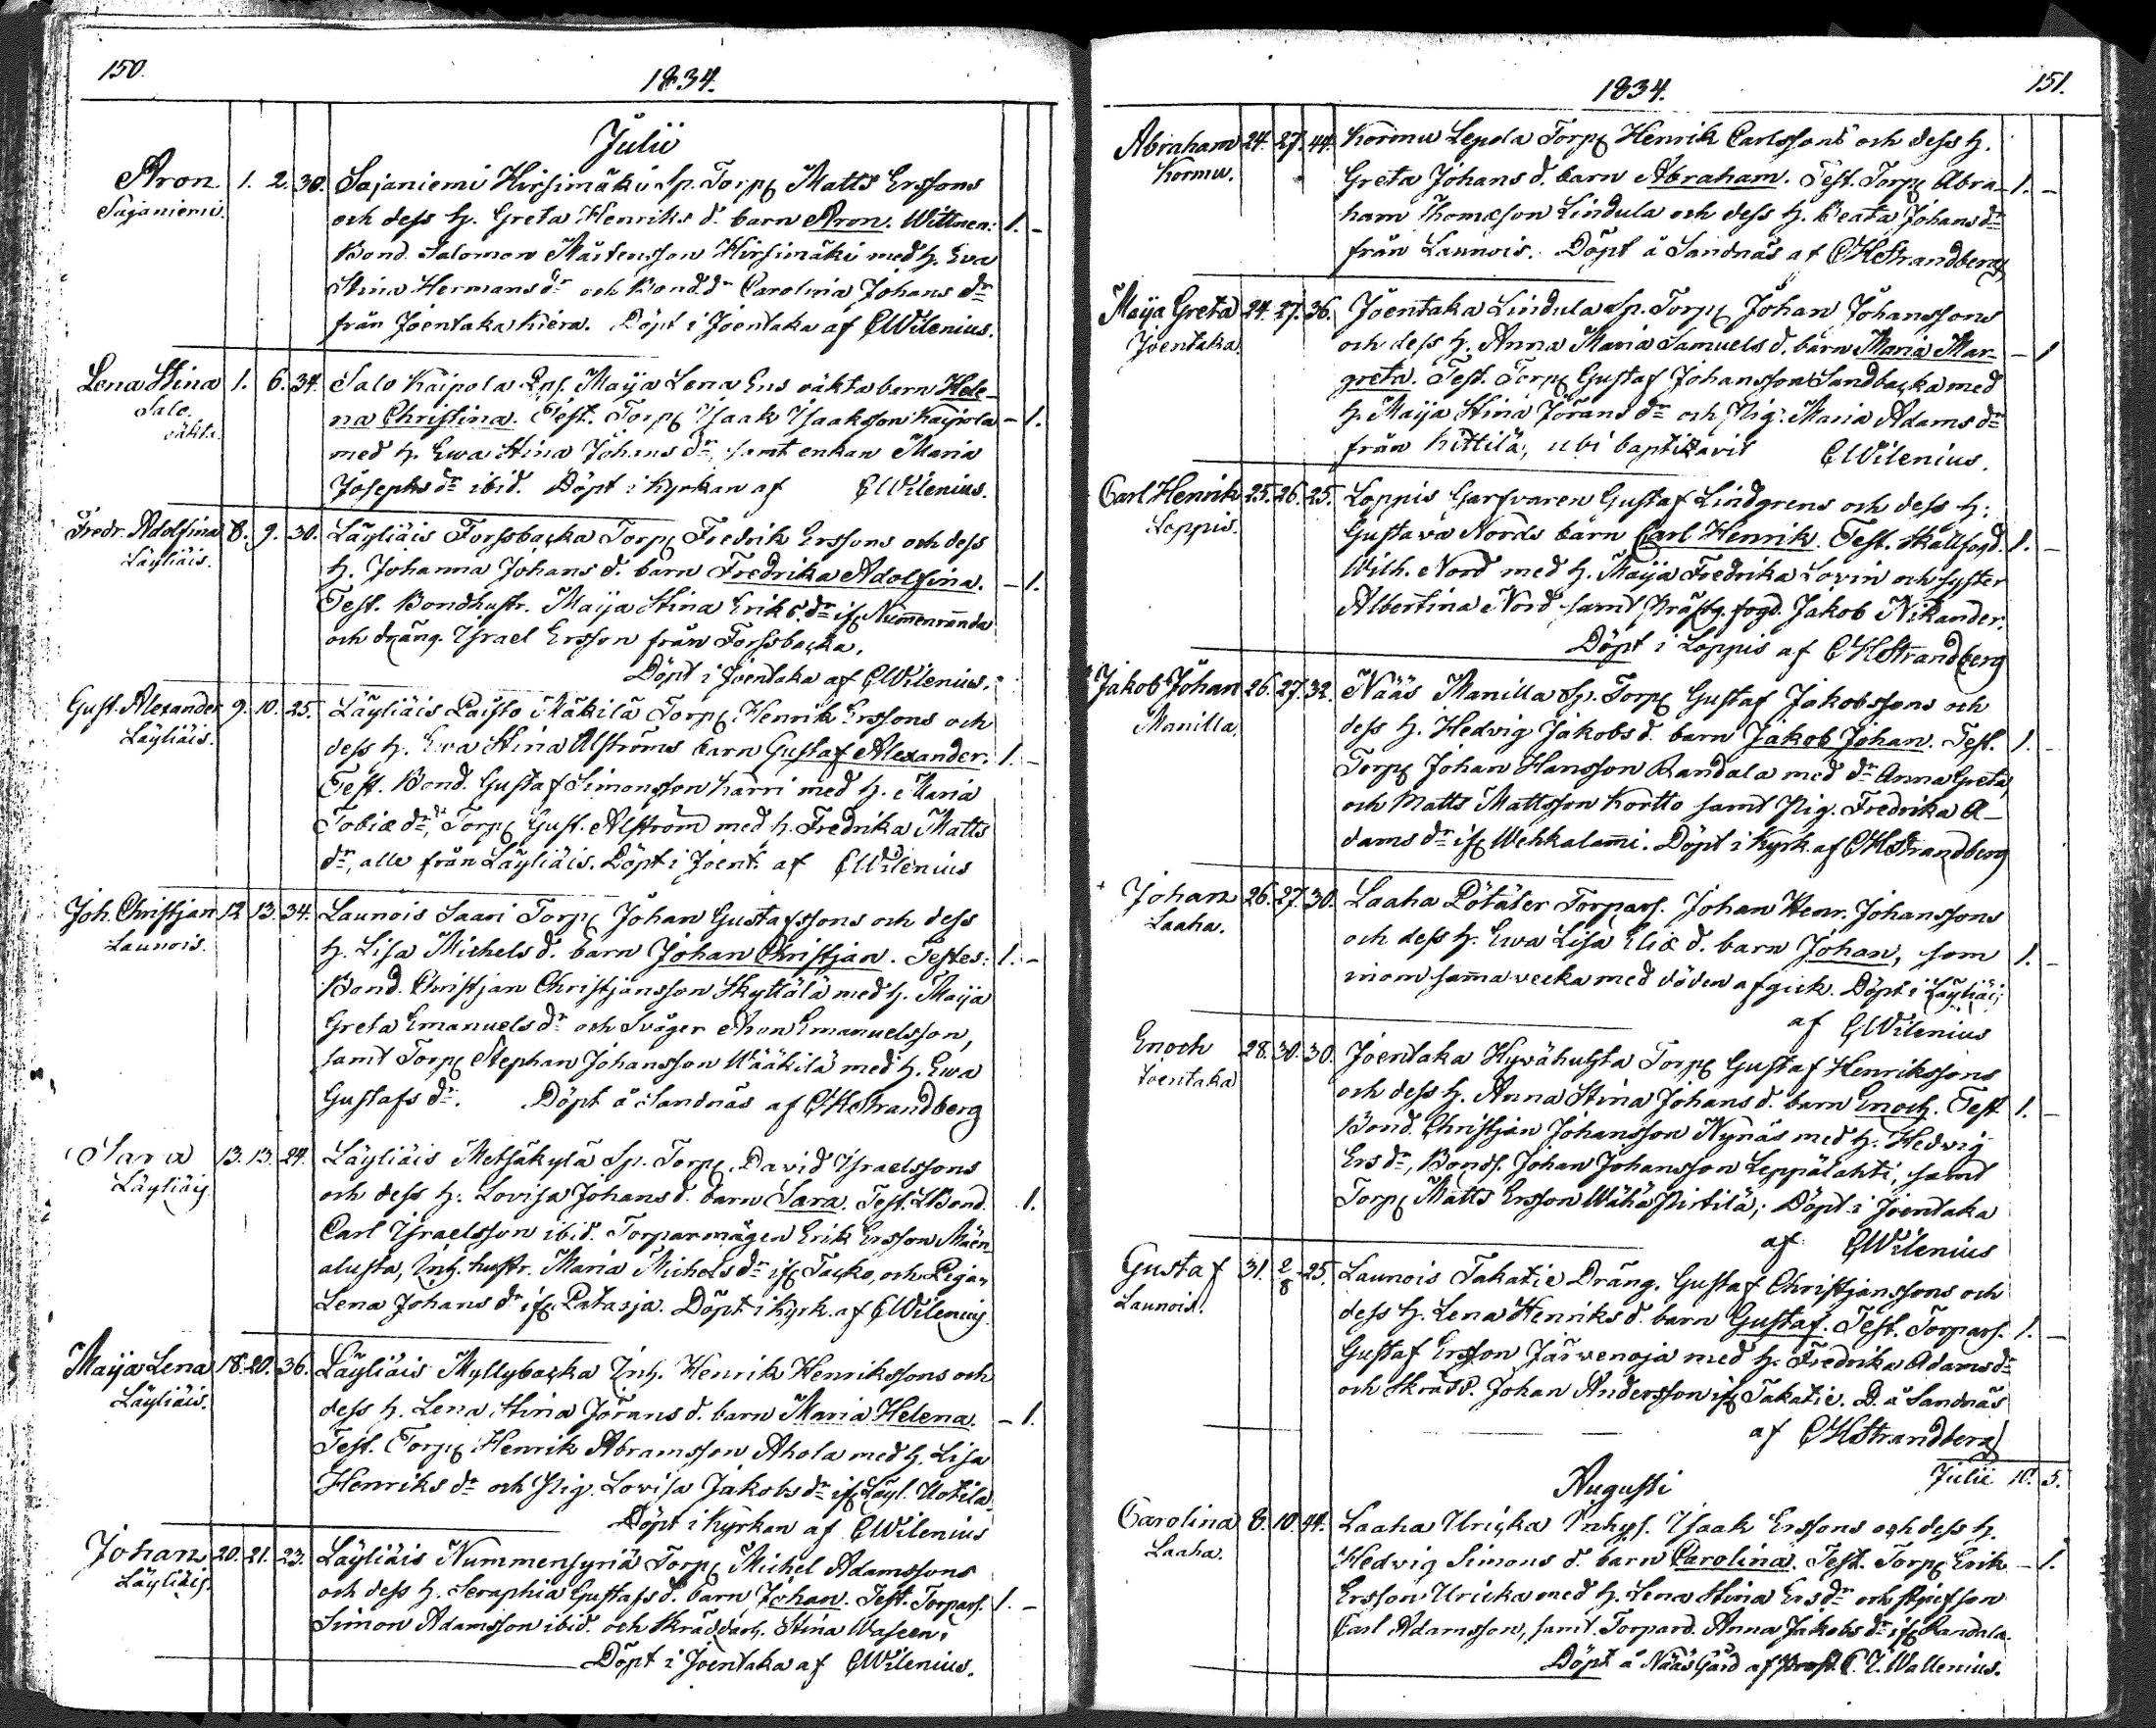 150.
1834.
Julii
Aron 1. 2. 30. Sajaniemi Hirsimäki Sp. Torp. Matts Erssons
Sajaniemi. och dess h. Greta Henriks d. barn Aron. Wittnen: 1. –
Bond. Salomon Mårtensson Hirsimäki med h. Eva
Stina Hermans dr och Bond. dr Carolina Johans dr
från Joentaka Kiera. Döpt i Joentaka af CWilenius.
Lena Stina 1. 6. 34. Salo Kaipola Maija Lena Ers oäkta barn Hele-
Salo. na Christina. Test. Torp. Isaak Isaaksson Kaipola – 1.
oäkta. med h. Ewa Stina Johans dr, samt enkan Maria
Josephs dr ibid. Döpt i Kyrkan af CWilenius.
Fredr. Adolfina 8. 9. 30. Läyliäis Forssbacka Torp. Fredrik Erssons och dess
Läyliäis. h. Johanna Johans d. barn Fredrika Adolfina. – 1.
Test. Bondhustr. Maija Stina Eriks dr if. Num̄enrānda
och dräng. Israel Ersson från Forssbacka.
Döpt i Joentaka af CWilenius.
Gust. Alexander 9. 10. 25. Läyliäis Paisto Mäkilä Torp. Henrik Erssons och
Läyliäis. dess h. Ewa Stina Alströms barn Gustaf Alexander. 1. –
Test. Bond. Gustaf Simonsson Karri med h. Maria
Tobiæ dr, Torp. Gust. Alström med h. Fredrika Matts
dr, alle från Läyliäis. Döpt i Joent. af CWilenius
Joh. Christjan 12. 13. 34. Launois Saari Torp. Johan Gustafssons och dess
Launois. h. Lisa Michels d. barn Johan Christjan. Testes: 1. –
Bond. Christjan Christjansson Skyttälä med h. Maija
Greta Emanuels dr och Svåger Aron Emanuelsson,
samt Torp. Stephan Johansson Wääkilä med h. Ewa
Gustafs dr. Döpt å Sandnäs af CHStrandberg
Sara 13. 13. 24. Läyliäis Metsäkylä Sp. Torp. David Israelssons
Läyliäis och dess h. Lovisa Johans d. barn Sara. Test. Bond. 1.
Carl Israelsson ibid. Torparmågen Erik Ersson Mäen
alusta, Inh. hustr. Maria Michels dr if. Tacko, och Pigan
Lena Johans dr if. Patasja. Döpt i Kyrk. af CWilenius
Maija Lena 18. 20. 36. Läyliäis Myllybacka Inh. Henrik Henrikssons och
Läyliäis. dess h. Lena Stina Jörans d. barn Maria Helena. – 1.
Test. Torp. Henrik Abramsson Ahola med h. Lisa
Henriks dr och Pig. Lovisa Jakobs dr if. Läyl. Uotila.
Döpt i Kyrkan af CWilenius
Johan 20. 21. 23. Läyliäis Nummensyriä Torp. Michel Adamssons
Läyliäis. och dess h. Seraphia Gustafs d. barn Johan. Test. Torpars. 1. –
Simon Adamsson ibid. och Skräddarh. Stina Waseen.
Döpt i Joentaka af CWilenius.
1834.
151.
Abraham 24. 27. 44. Kormu Lepola Torp. Henrik Carlssons och dess h.
Kormu. Greta Johans d. barn Abraham. Test. Torp. Abra- 1. –
ham Thomæson Lindula och dess h. Beata Johans dr
från Launois. Döpt å Sandnäs af CHStrandberg
Maija Greta 24. 27. 36. Joentaka Lindula Sp. Torp. Johan Johanssons
Joentaka. och dess h. Anna Maria Samuels d. barn Maria Mar- – 1
greta. Test. Torp. Gustaf Johansson Sandbacka med
h. Maija Stina Jörans dr och Pig. Maria Adams dr
från Kittilä, ubi baptizavit CWilenius.
Carl Henrik 25. 26. 25. Loppis Garfvaren Gustaf Lindgrens och dess h.
Loppis. Gustava Nords barn Carl Henrik. Test. Skallfogd. 1. –
Wilh. Nord med h. Maija Fredrika Lovin och syster
Albertina Nord samt Prästg. fogd. Jakob Nikander.
Döpt i Loppis af CHStrandberg
Jakob Johan 26. 27. 32. Nääs Manilla Sp. Torp. Gustaf Jakobssons och
Manilla. dess h. Hedvig Jakobs d. barn Jakob Johan. Test. 1. –
Torp. Johan Hansson Randala med dr Anna Greta,
och Matts Mattsson Kortto samt Pig. Fredrika A-
dams dr if. Wehkalam̄i. Döpt i Kyrk. af CHStrandberg
+ Johan 26. 27. 30. Laaha Pötäter Torpars. Johan Henr. Johanssons
Laaha. och dess h. Ewa Lisa Eliæ d. barn Johan, som 1. –
inom sam̄a vecka med döden afgick. Döpt i Läyliäis
af CWilenius
Enoch 28. 30. 30. Joentaka Hyvähuhta Torp. Gustaf Henrikssons
Joentaka och dess h. Anna Stina Johans d. barn Enoch. Test 1. –
Bond. Christjan Johansson Nynäs med h. Hedvig
Ers dr, Bonds. Johan Johansson Leppälahti, samt
Torp. Matts Ersson Wähä Pirtilä; Döpt i Joentaka
af CWilenius
Gustaf 31. 2/8 25. Launois Takatie Dräng. Gustaf Christjanssons och
Launois. dess h. Lena Henriks d. barn Gustaf. Test. Torpars. 1. –
Gustaf Ersson Järvenoja med h. Fredrika Adams dr
och Skrädd. Johan Andersson if. Takatie. D. å Sandnäs
af CHStrandberg
Julii 10. 5.
Augusti
Carolina 8. 10. 44. Laaha Uricka Inhys. Isaak Erssons och dess h.
Laaha. Hedvig Simons d. barn Carolina. Test. Torp. Erik – 1.
Ersson Uricka med h. Lena Stina Ers dr och styfson
Carl Adamsson, samt Torpard. Anna Jakobs dr if. Randala.
Döpt å Nääs Gård af Prost. C. J. Wallenius.